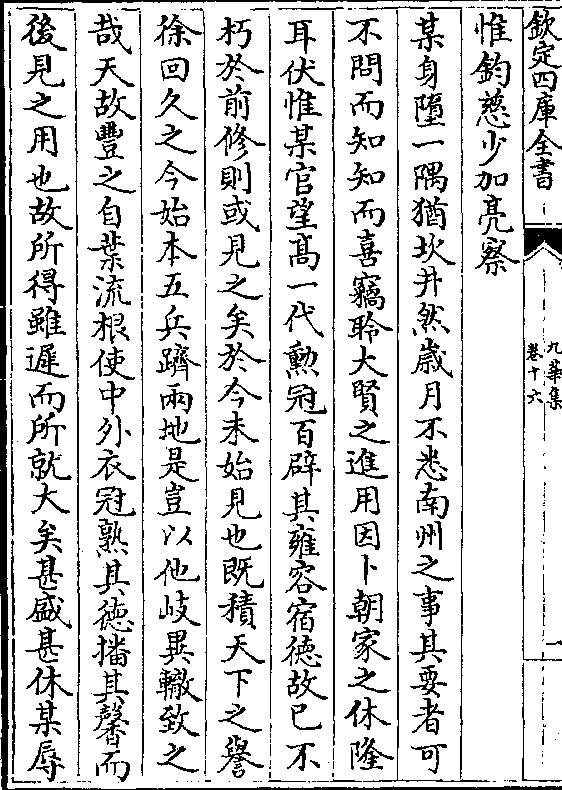 欽定四庫全書
九華集
卷十六
一
惟鈞慈少加亮察
某身墮一隅猶坎井然歲月不悉南州之事其要者可
不問而知知而喜竊聆大賢之進用因卜朝家之休隆
耳伏惟某官望髙一代勲冠百辟其雍容宿徳故已不
朽於前修則或見之矣於今未始見也既積天下之譽
徐回久之今始本五兵躋兩地是豈以他岐異轍致之
哉天故豐之自葉流根使中外衣冠熟其徳播其馨而
後見之用也故所得雖遲而所就大矣甚盛甚休某辱